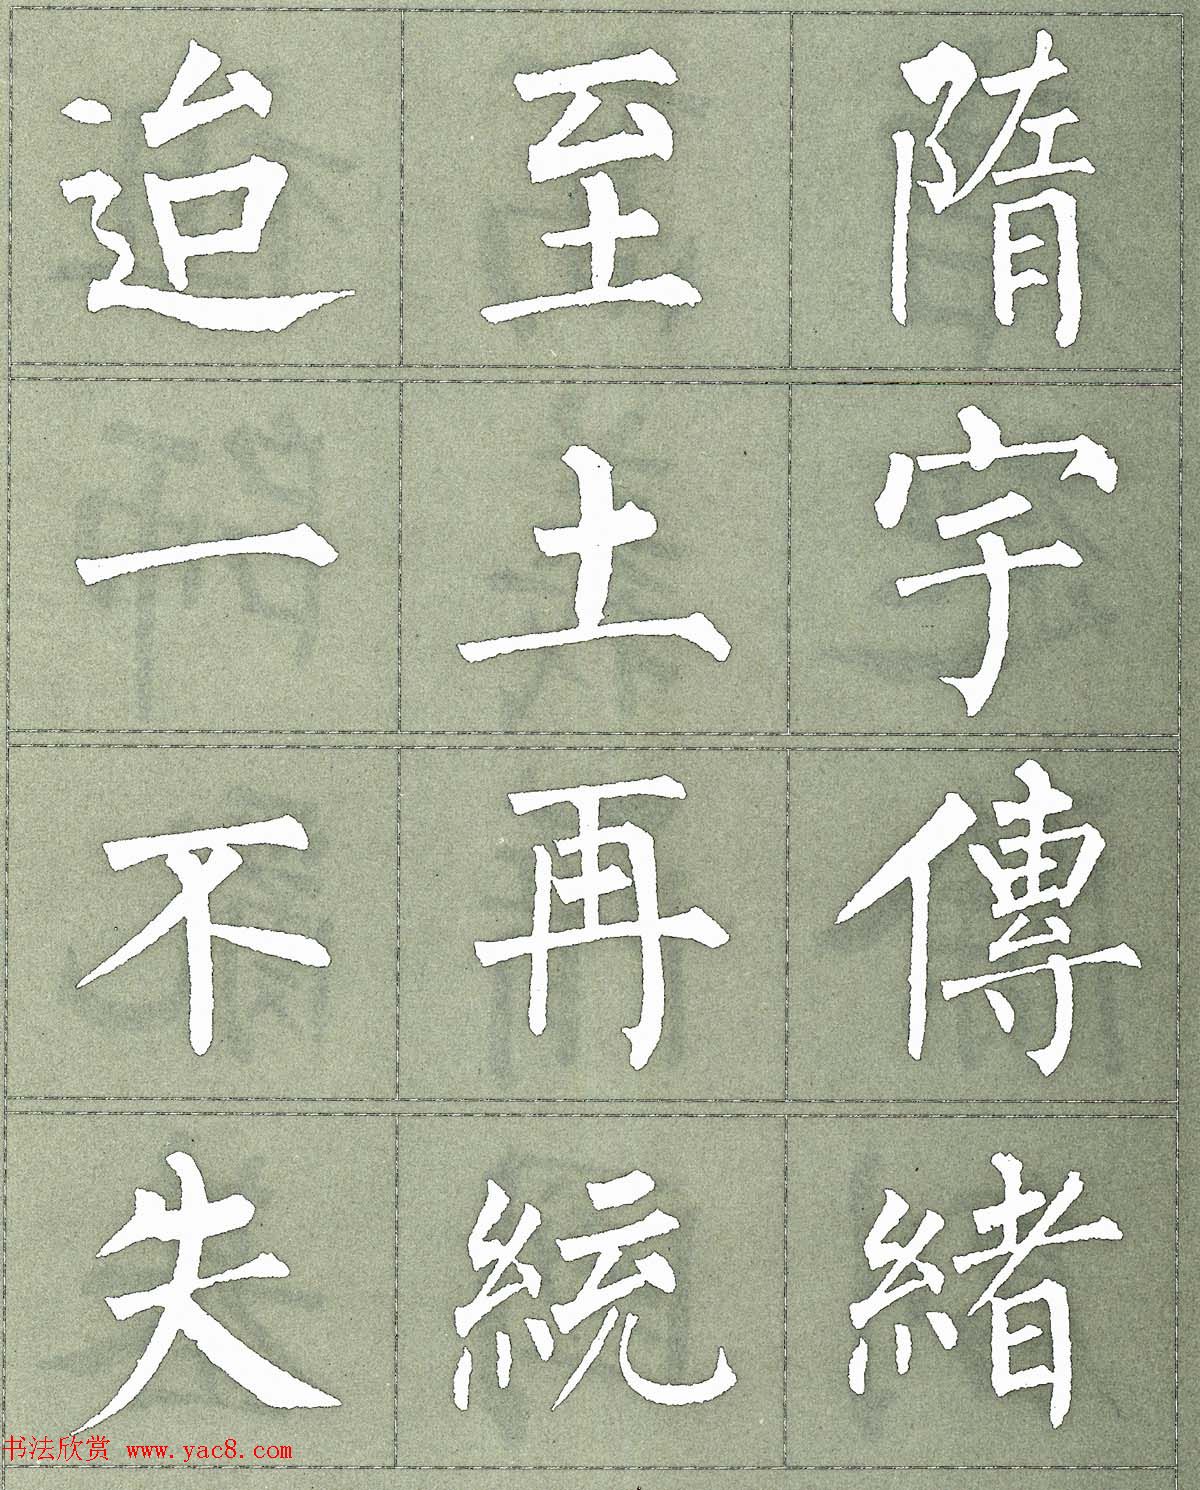 隋宇傳緒
至土再統
迨一不失
书法欣赏 www.yac8.com